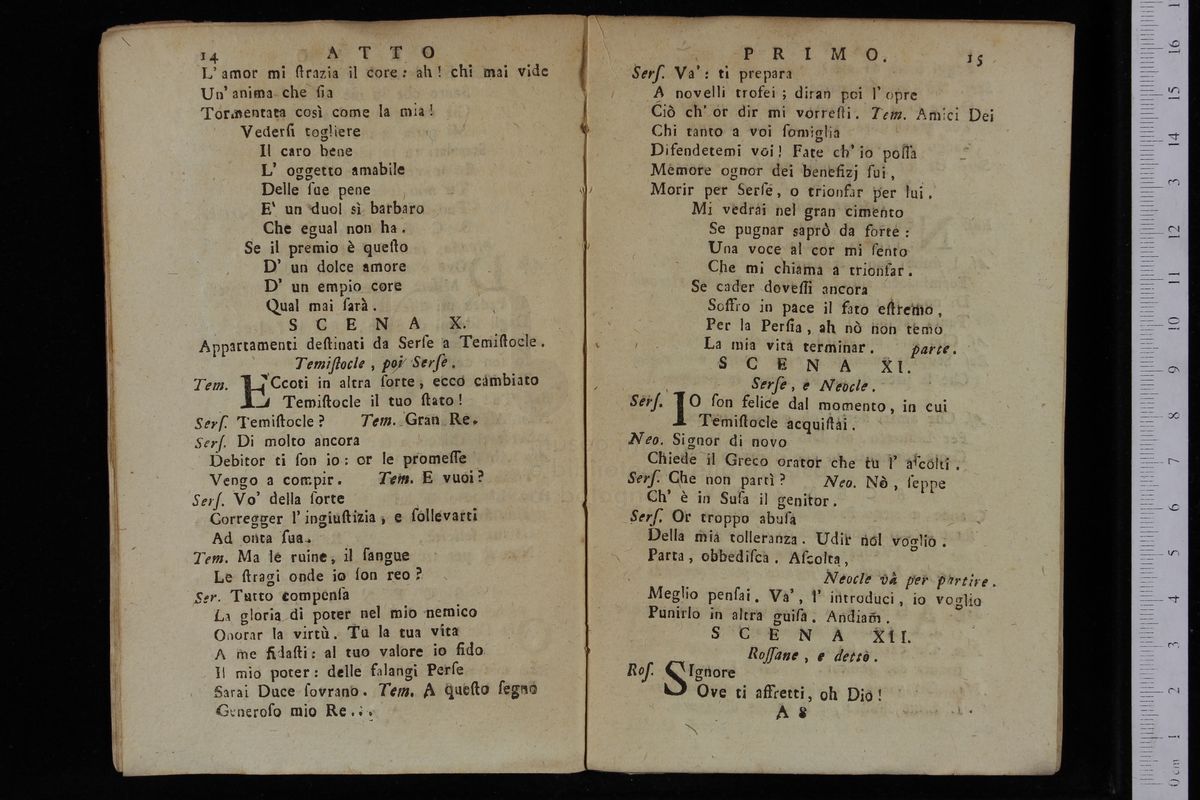 14 ATTO
L'amor mi ſtrazia il core: ah! chi mai vide
Un'anima che ſia
Tormentata così come la mia!
Vederſi togliere
Il caro bene
L' oggetto amabile
Delle ſue pene
E' un duol sì barbaro
Che egual non ha.
Se il premio è queſto
D' un dolce amore
D' un empio core
Qual mai ſarà.
SCENA X.
Appartamenti deſtinati da Serſe a Temiſtocle.
Temiſtocle, poi Serſe.
Tem. ECcoti in altra ſorte, ecco cambiato
Temiſtocle il tuo ſtato!
Serſ. Temiſtocle? Tem. Gran Re.
Serſ. Di molto ancora
Debitor ti ſon io: or le promeſſe
Vengo a compir. Tem. E vuoi?
Serſ. Vo' della ſorte
Corregger l'ingiuſtizia, e ſollevarti
Ad onta ſua.
Tem. Ma le ruine, il ſangue
Le ſtragi onde io ſon reo?
Ser. Tutto compenſa
La gloria di poter nel mio nemico
Onorar la virtù. Tu la tua vita
A me fidaſti: al tuo valore io fido
Il mio poter: delle falangi Perſe
Sarai Duce ſovrano. Tem. A queſto ſegno
Generoſo mio Re...
PRIMO. 15
Serſ. Va': ti prepara
A novelli trofei; diran poi l'opre
Ciò ch'or dir mi vorreſti. Tem. Amici Dei
Chi tanto a voi ſomiglia
Difendetemi voi! Fate ch'io poſſa
Memore ognor dei benefizj ſui,
Morir per Serſe, o trionfar per lui.
Mi vedrai nel gran cimento
Se pugnar saprò da forte:
Una voce al cor mi ſento
Che mi chiama a trionfar.
Se cader doveſſi ancora
Soffro in pace il fato eſtremo,
Per la Perſia, ah nò non temo
La mia vita terminar. parte.
SCENA XI.
Serſe, e Neocle.
Serſ. IO ſon felice dal momento, in cui
Temiſtocle acquiſtai.
Neo. Signor di novo
Chiede il Greco orator che tu l'aſcolti.
Serſ. Che non partì? Neo. Nò, ſeppe
Ch' è in Suſa il genitor.
Serſ. Or troppo abuſa
Della mia tolleranza. Udir nol voglio.
Parta, obbediſca. Aſcolta,
Neocle và per partire.
Meglio penſai. Va', l' introduci, io voglio
Punirlo in altra guiſa. Andiam̃.
SCENA XII.
Roſſane, e detto.
Roſ. SIgnore
Ove ti affretti, oh Dio!
A 8